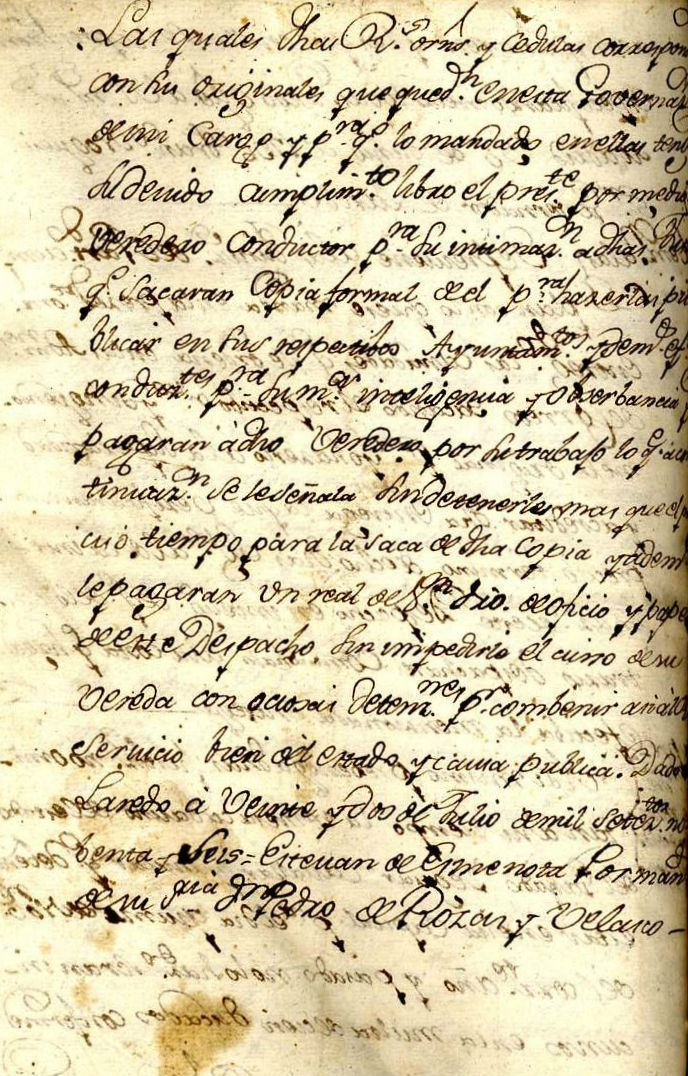 Las quales dhas R.s orns. y Cedulas correspon
con sus originales que qued.n en esta Governaz
de mi Cargo y p.ra q.e lo mandado en ellas teng
su devido cumplim.to libro el pres.te por medio
Veredero Conductor p.ra su intimaz.n a dhas
q.e sacaran Copia formal de el p.ra hazerlas pu
blicar en sus respectibos Ayuntam.tos y dem.s
conduz.tes p.ra su m.or inteligencia y Observancia
pagaran á dho Veredero por su trabajo lo q.e á con
tinuaz.n se le señala sin detenerle mas que el p
cisso tiempo para la saca de dha Copia y adem
le pagaran Un real de V.n dro. de oficio y pape
de este Despacho sin impedirle el curso de su
Vereda con ociosas detenz.nes p.r combenir asi al
Servicio bien del estado y causa publica. Dado
Laredo á Veinte y dos de Julio de mil setez.tos no
benta y seis = Estevan de Esmenota Por man.d
de su S.ria Pedro de Rozas y Velasco -